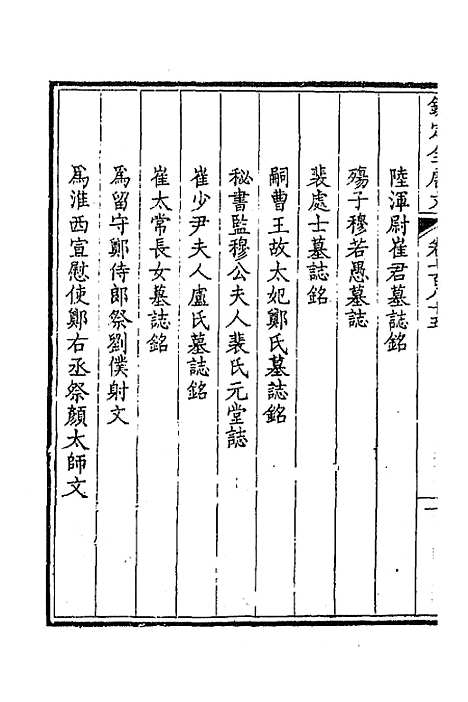 欽定全唐文 卷七百八十五 一
陸渾尉崔君墓誌銘
殤子穆若愚墓誌
裴處士墓誌銘
嗣曹王故太妃鄭氏墓誌銘
秘書監穆公夫人裴氏元堂誌
崔少尹夫人盧氏墓誌銘
崔太常長女墓誌銘
爲留守鄭侍郎祭劉僕射文
爲淮西宣慰使鄭右丞祭顏太師文